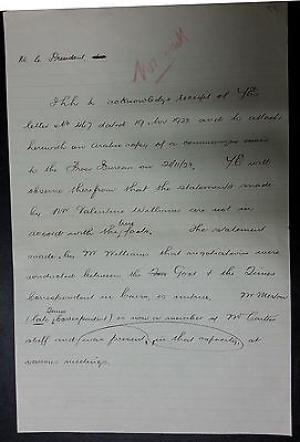 H. E. President
I hh to acknowledge receipt of YE
letter No 467 dated 19 Nov 1923 and to attach
herewith an Arabic copy of a communique issued
to the Press Bureau on 20/11/23. YE will
observe therefrom that the statements made
by Mr Valentine Williams are not in
true
accord with the facts. The statement
made by Mr Williams that negotiations were
conducted between the Govt & the Times
Correspondent in Cairo, is untrue. Mr Merton
Times
(late correspondent) is now a member of Mr Carter
staff and was present, in that capacity, at
various meetings.